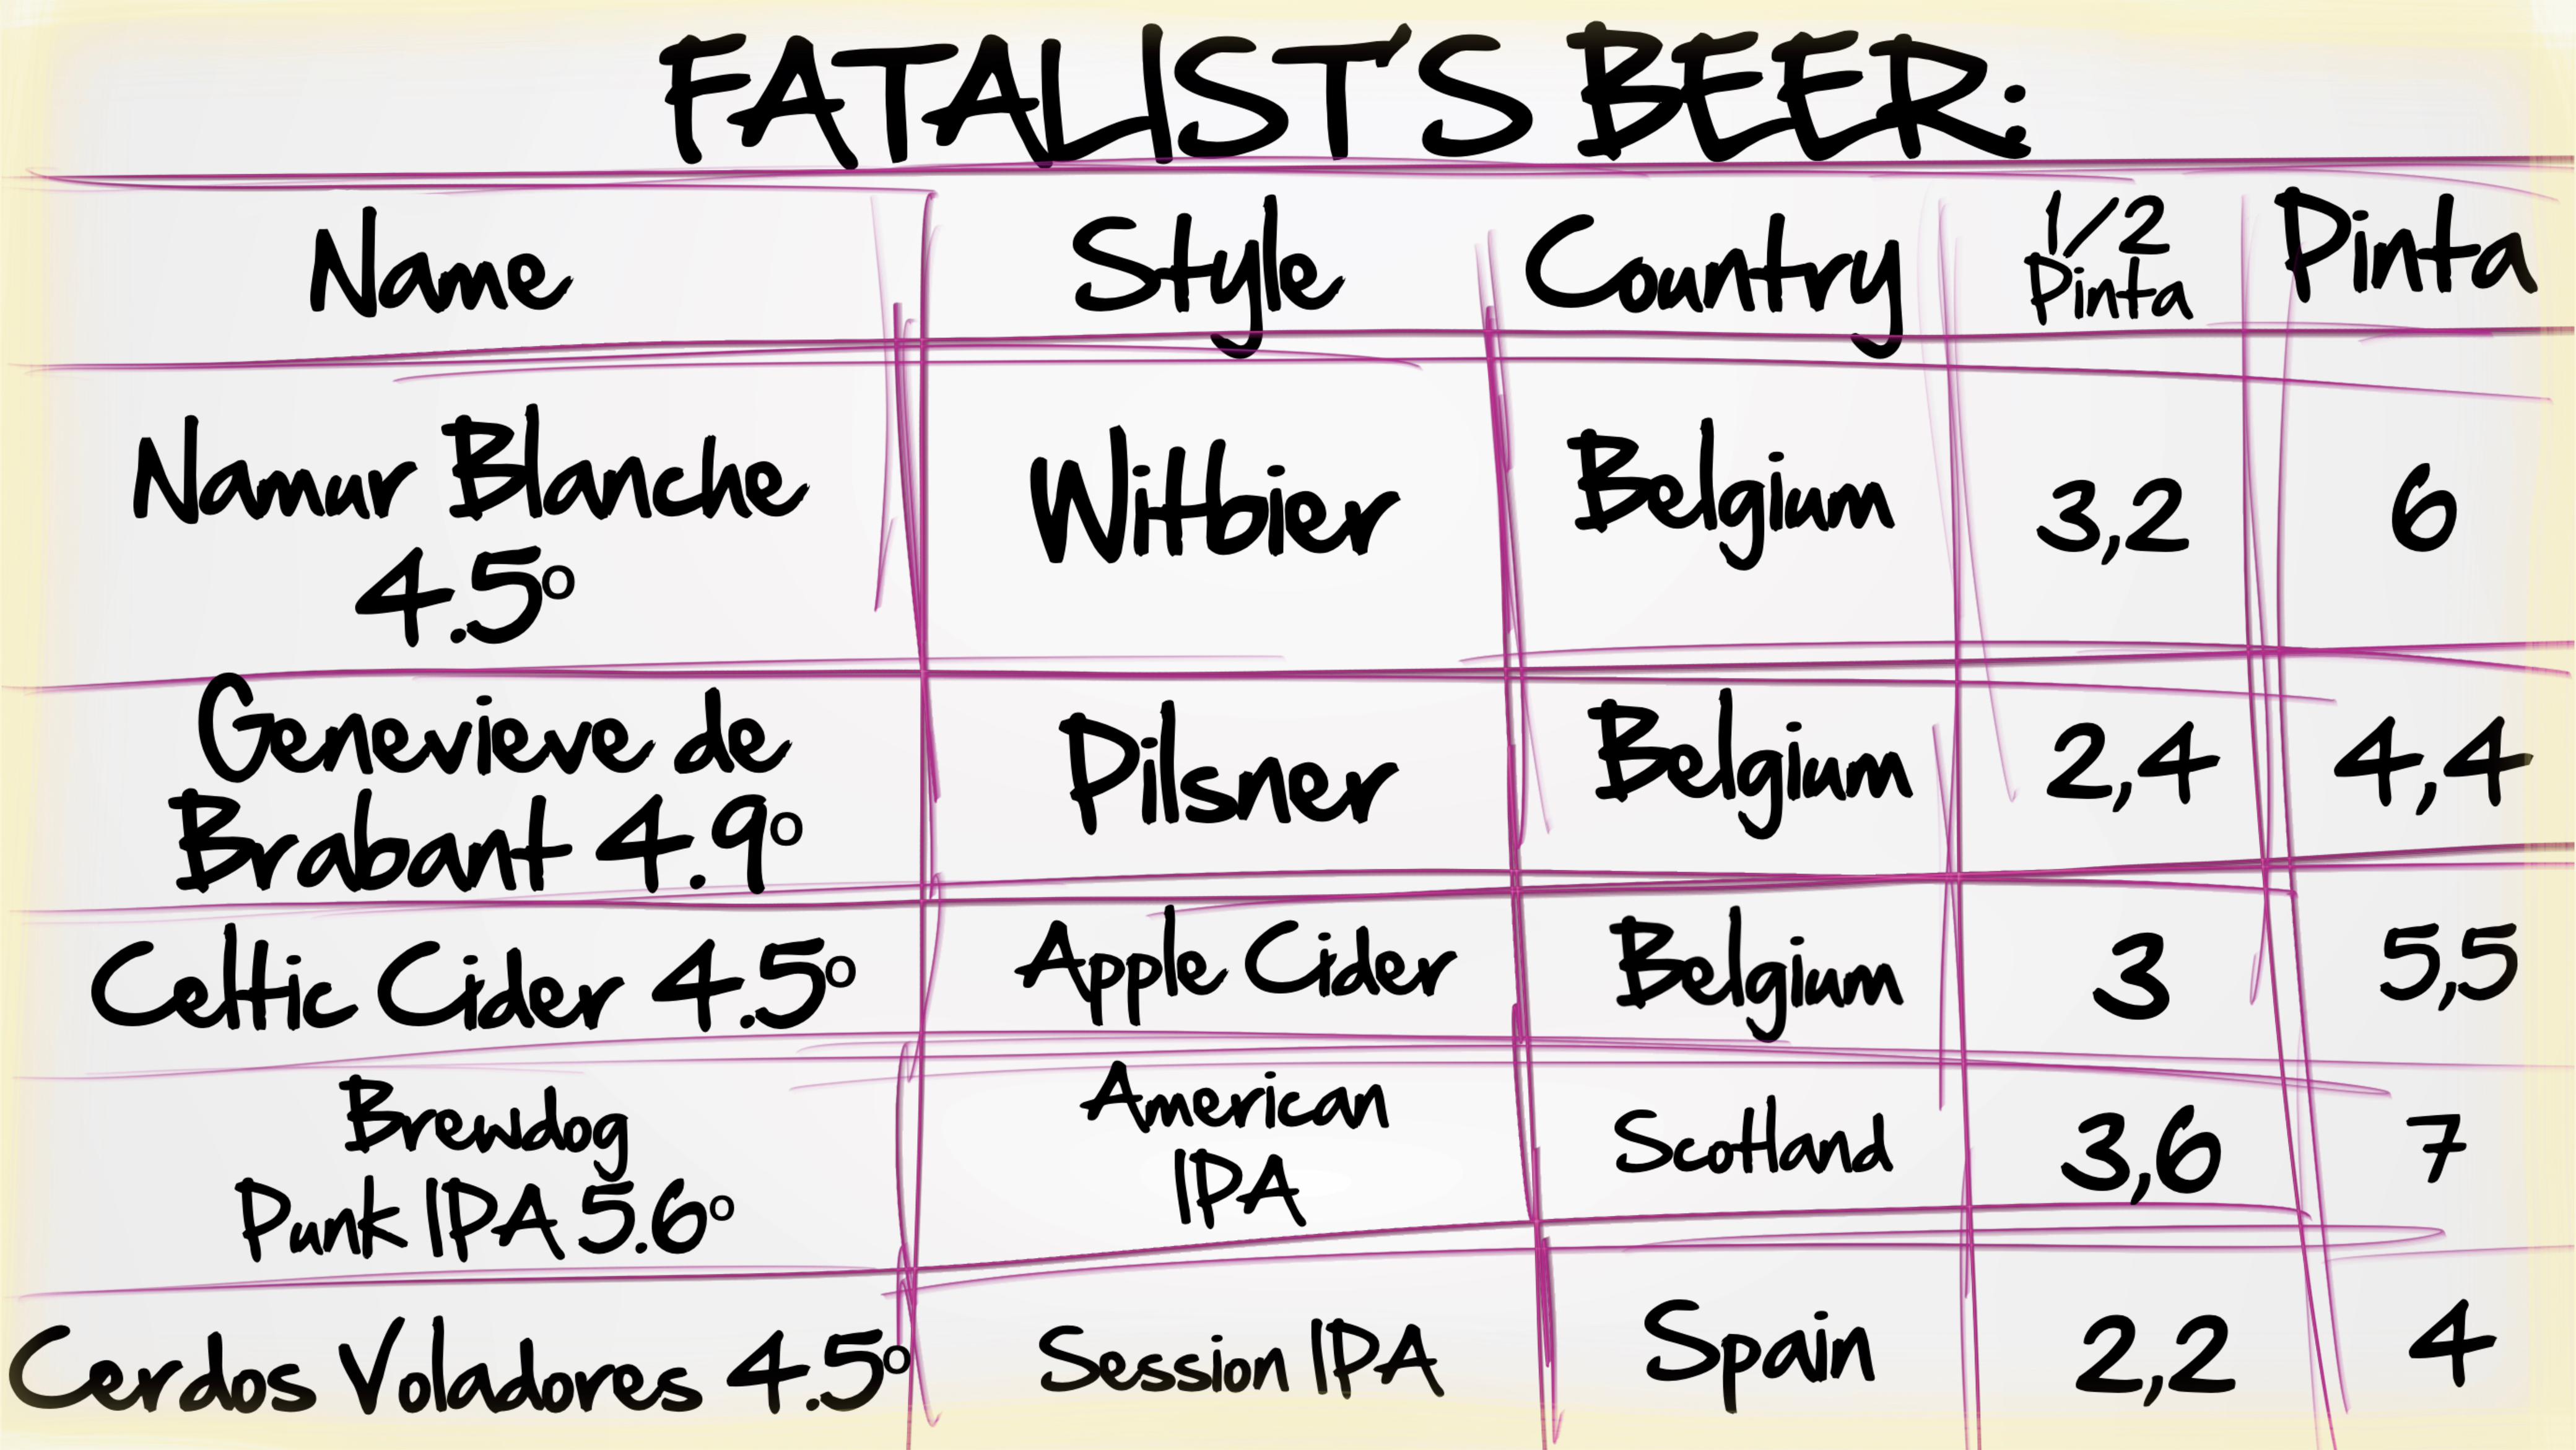 FATALIST'S BEER:
Name Style Country 1/2 Pinta Pinta
Namur Blanche
4.5º
Witbier Belgium 3,2 6
Genevieve de
Brabant 4.9º
Pilsner Belgium 2,4 4,4
Celtic Cider 4.5º Apple Cider Belgium 3 5,5
Brewdog
Punk IPA 5.6º
American
IPA
Scotland 3,6 7
Cerdos Voladores 4.5º Session IPA Spain 2,2 4